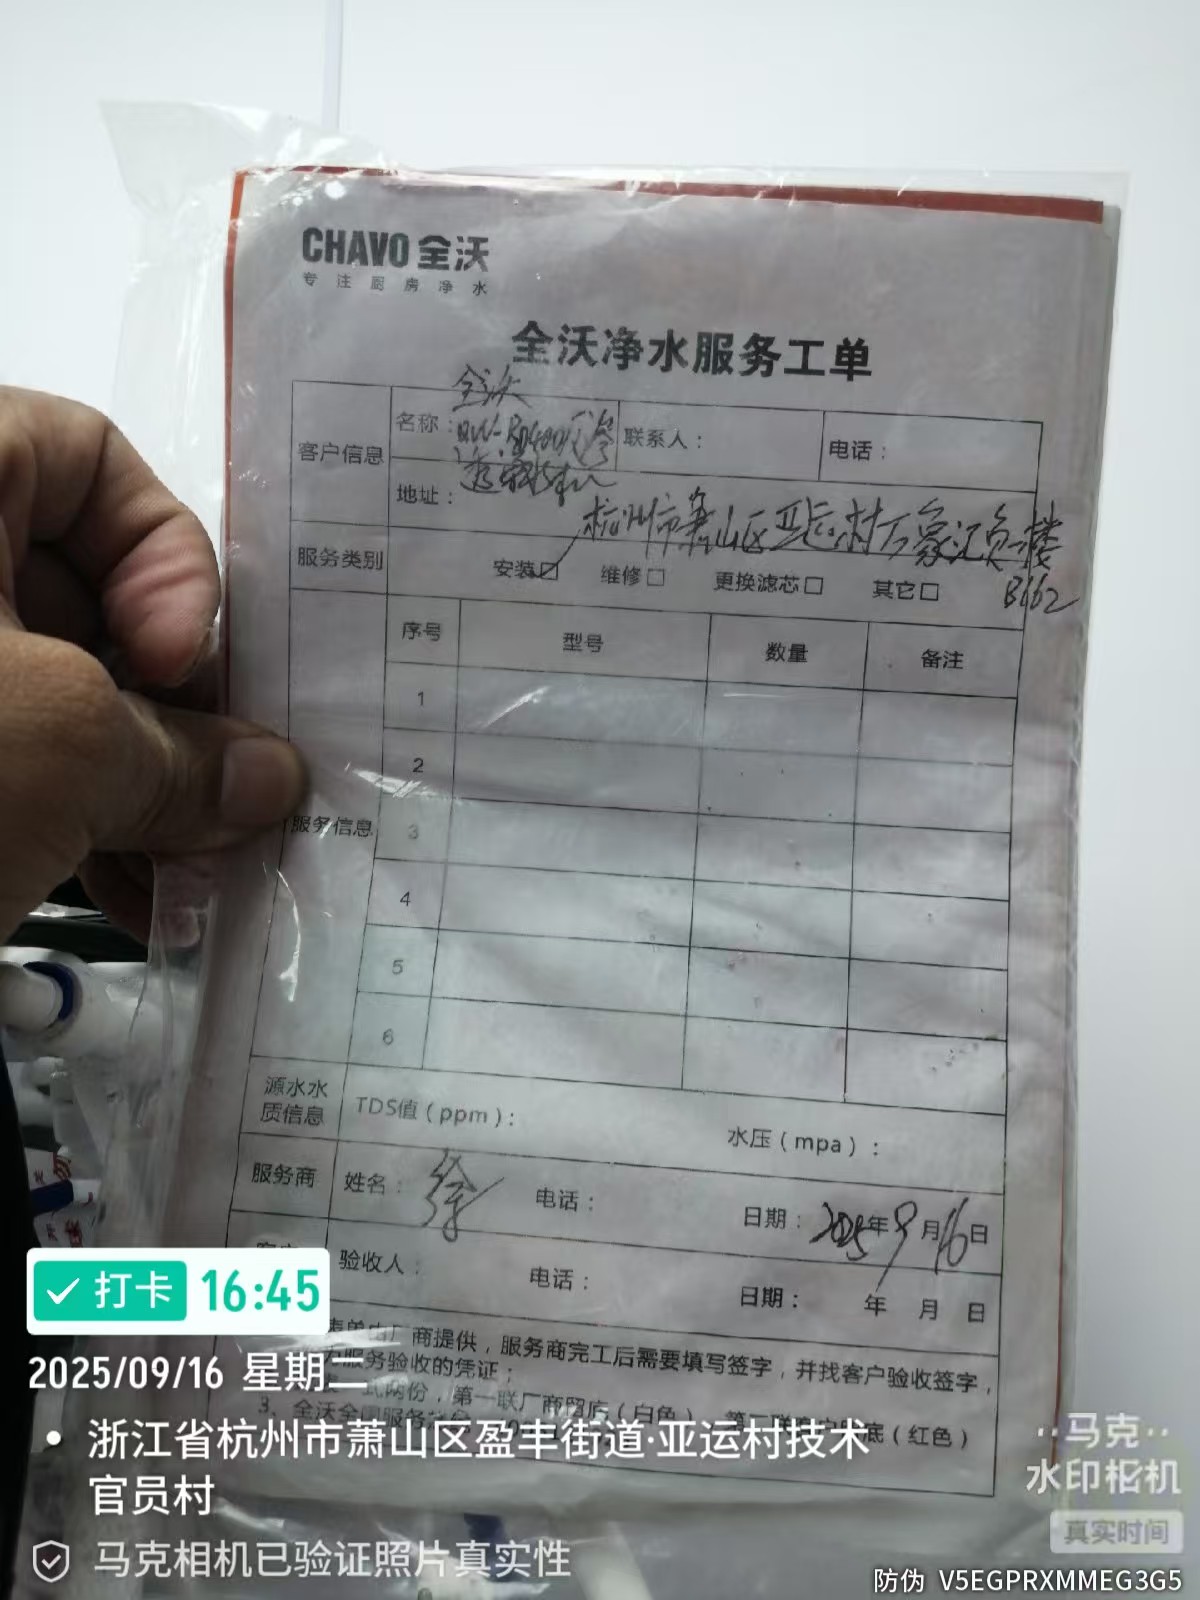 CHAVO 全沃
专注厨房净水
全沃净水服务工单
全沃
客户信息 名称： 联系人： 电话：
地址： 杭州市萧山区亚运村万象汇负一楼
B162
服务类别 安装☑ 维修□ 更换滤芯□ 其它□
服务信息 序号 型号 数量 备注
1
2
3
4
5
6
源水水质信息 TDS值（ppm）： 水压（mpa）：
服务商 姓名：徐 电话： 日期：2025年9月16日
验收人： 电话： 日期： 年 月 日
表单由厂商提供，服务商完工后需要填写签字，并找客户验收签字，
服务验收的凭证；
式两份，第一联厂商留底（白色） 底（红色）
3、全沃全国服务
打卡 16:45
2025/09/16 星期二
浙江省杭州市萧山区盈丰街道·亚运村技术
官员村
马克相机已验证照片真实性
马克
水印相机
真实时间
防伪 V5EGPRXMMEG3G5